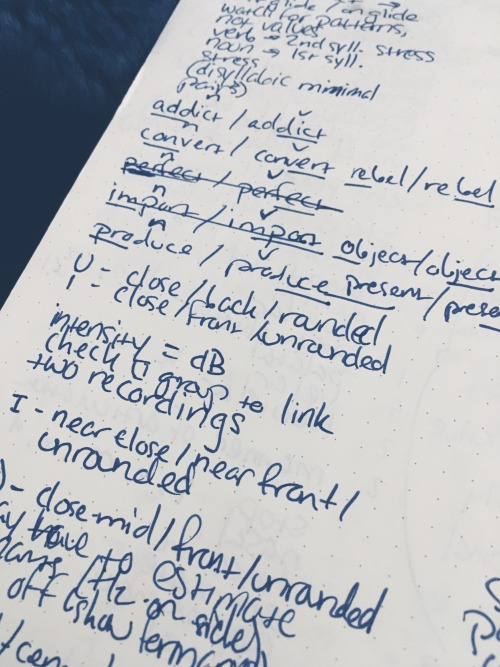 glide / onglide
watch for patterns,
not values
verb → 2nd syll. stress
noun → 1st syll.
stress
(disyllabic minimal
pairs)
n v
addict / addict
n v
convert / convert rebel/rebel
n v
perfect / perfect
n v
import / import object/object
n v
produce / produce present/prese
U = close / back / rounded
i = close / front / unrounded
intensity = dB
check group to link
two recordings
I - near close / near front /
unrounded
) - close-mid / front / unrounded
ay have to estimate
/ Hz on side)
off (show formant
/ cen